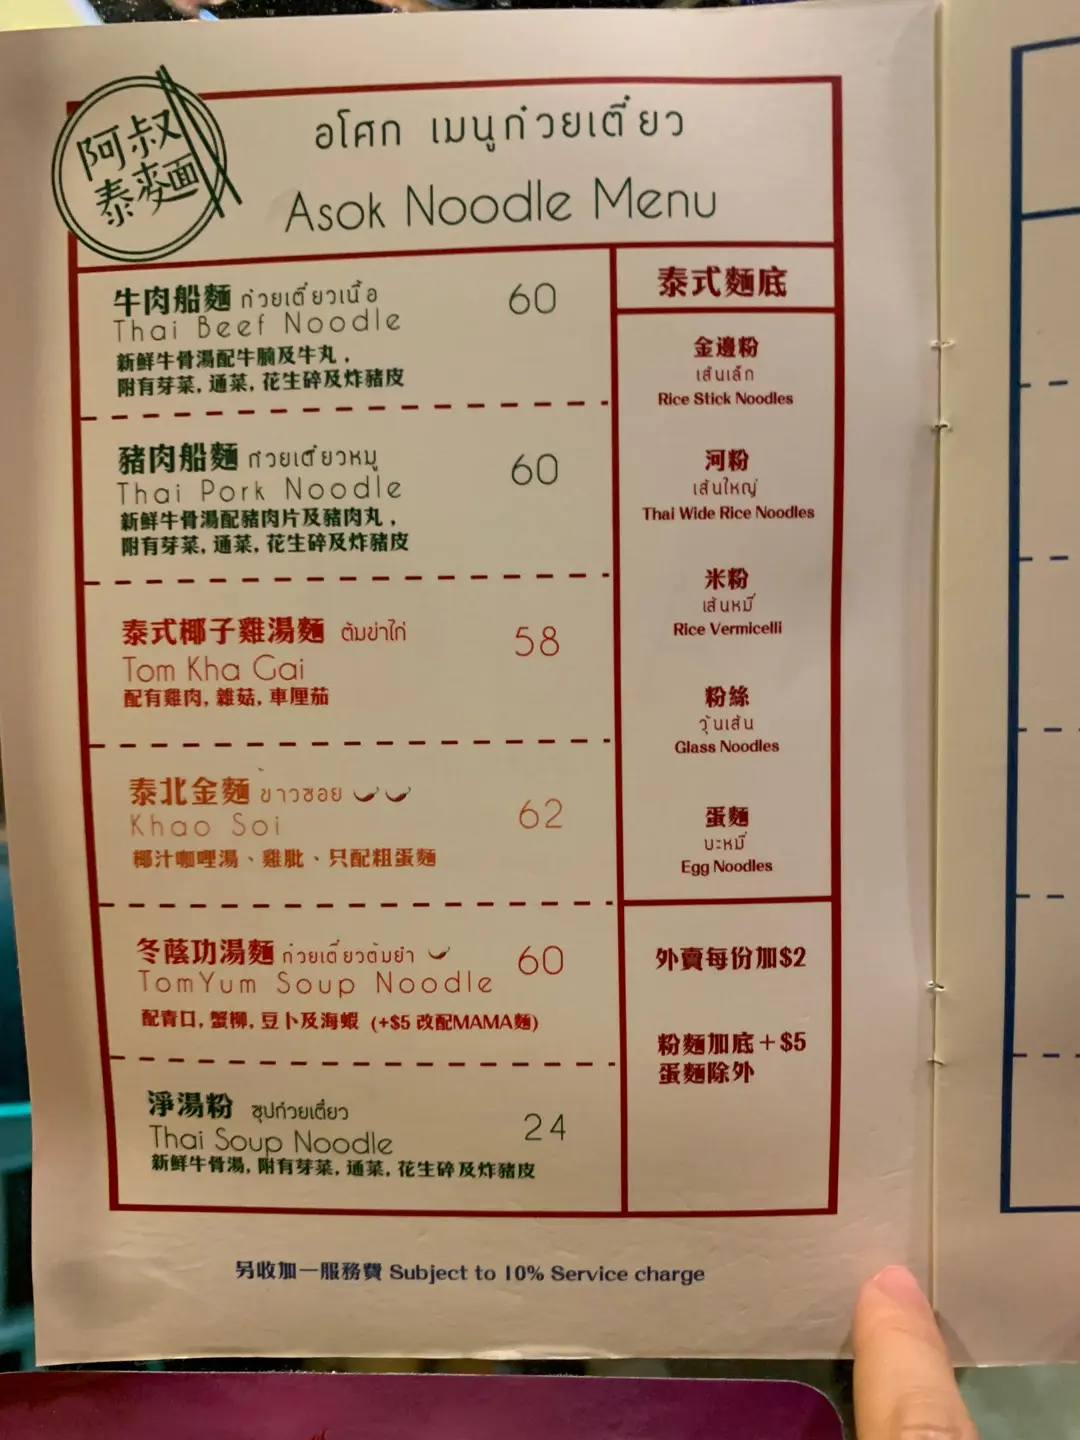 阿叔
泰麵
อโศก เมนูก๋วยเตี๋ยว
Asok Noodle Menu
牛肉船麵 ก๋วยเตี๋ยวเนื้อ 60
Thai Beef Noodle
新鮮牛骨湯配牛腩及牛丸，
附有芽菜, 通菜, 花生碎及炸豬皮
豬肉船麵 ก๋วยเตี๋ยวหมู 60
Thai Pork Noodle
新鮮牛骨湯配豬肉片及豬肉丸，
附有芽菜, 通菜, 花生碎及炸豬皮
泰式椰子雞湯麵 ต้มข่าไก่ 58
Tom Kha Gai
配有雞肉, 雜菇, 車厘茄
泰北金麵 ข้าวซอย 62
Khao Soi
椰汁咖喱湯、雞肶、只配粗蛋麵
冬蔭功湯麵 ก๋วยเตี๋ยวต้มยำ 60
TomYum Soup Noodle
配青口, 蟹柳, 豆卜及海蝦 (+$5 改配MAMA麵)
淨湯粉 ซุปก๋วยเตี๋ยว 24
Thai Soup Noodle
新鮮牛骨湯, 附有芽菜, 通菜, 花生碎及炸豬皮
泰式麵底
金邊粉
เส้นเล็ก
Rice Stick Noodles
河粉
เส้นใหญ่
Thai Wide Rice Noodles
米粉
เส้นหมี่
Rice Vermicelli
粉絲
วุ้นเส้น
Glass Noodles
蛋麵
บะหมี่
Egg Noodles
外賣每份加$2
粉麵加底＋$5
蛋麵除外
另收加一服務費 Subject to 10% Service charge